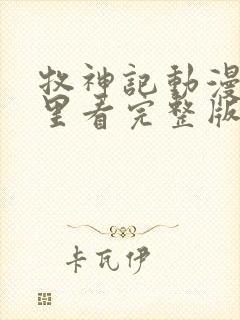 牧神記動漫
里看完整版
卡瓦伊